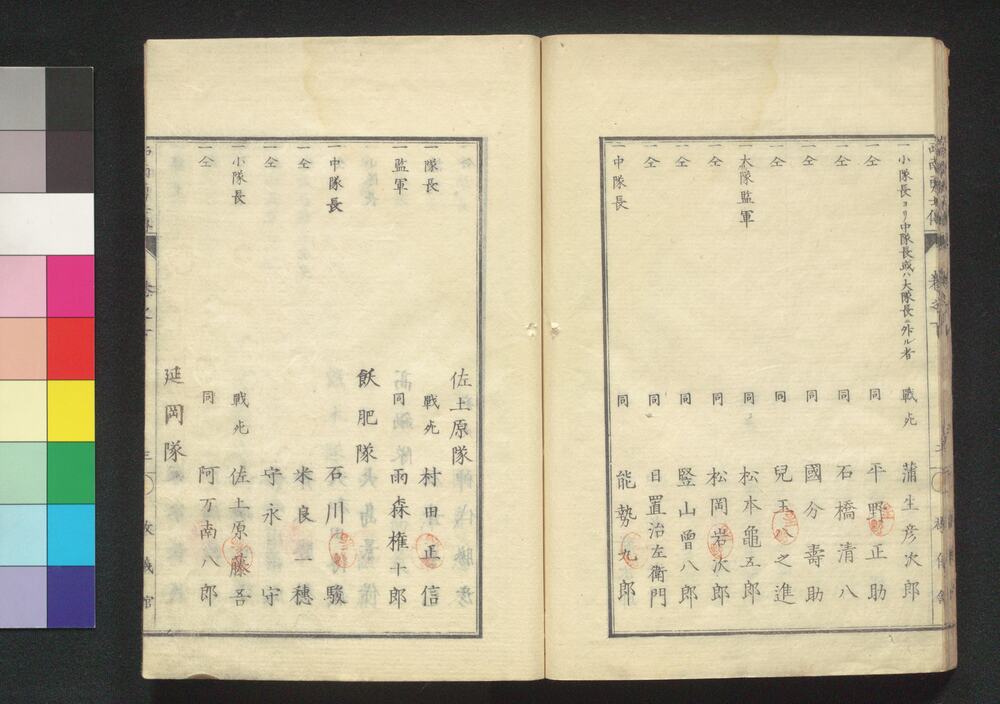 一小隊長ヨリ中隊長或ハ大隊長ニ外ル者 戦死 蒲生彦次郎
一仝 同 平野正助
一仝 同 石橋清八
一仝 同 國分壽助
一仝 同 兒玉八之進
一大隊監軍 同 松本亀五郎
一仝 同 松岡岩次郎
一仝 同 竪山曽八郎
一仝 同 日置治左衛門
一中隊長 同 能勢九郎
佐土原隊
一隊長 戦死 村田正信
一監軍 同 雨森権十郎
飫肥隊
一中隊長 石川駿
一仝 米良一穗
一仝 守永守
一小隊長 戦死 佐土原藤吾
一仝 同 阿万南八郎
延岡隊